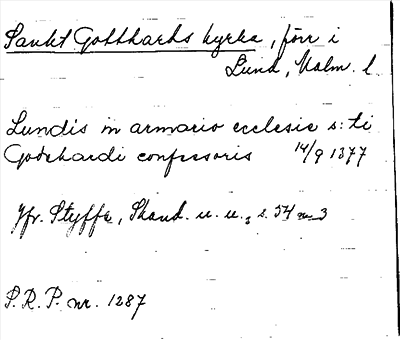 Sankt Gotthards kyrka, förr i
Lund, Malm. l.
Lundis in armario ecclesie s:ti
Godehardi confessoris 14/9 1377
Jfr. Styffe, Skand. u. u., s. 54 n. 3
S. R. P. nr. 1287